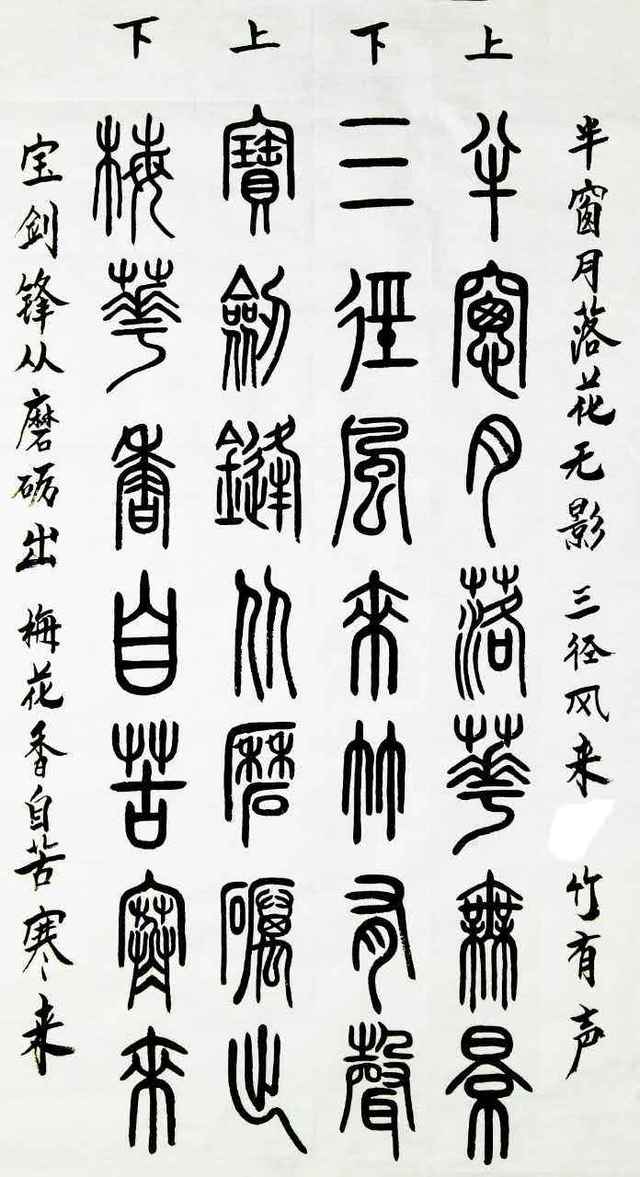 半窗月落花无影 三径风来 竹有声
上 半窗月落華無景
下 三徑風來竹有聲
上 寶劍鏠从磨礪出
下 梅華香自苦寒來
宝剑锋从磨砺出 梅花香自苦寒来